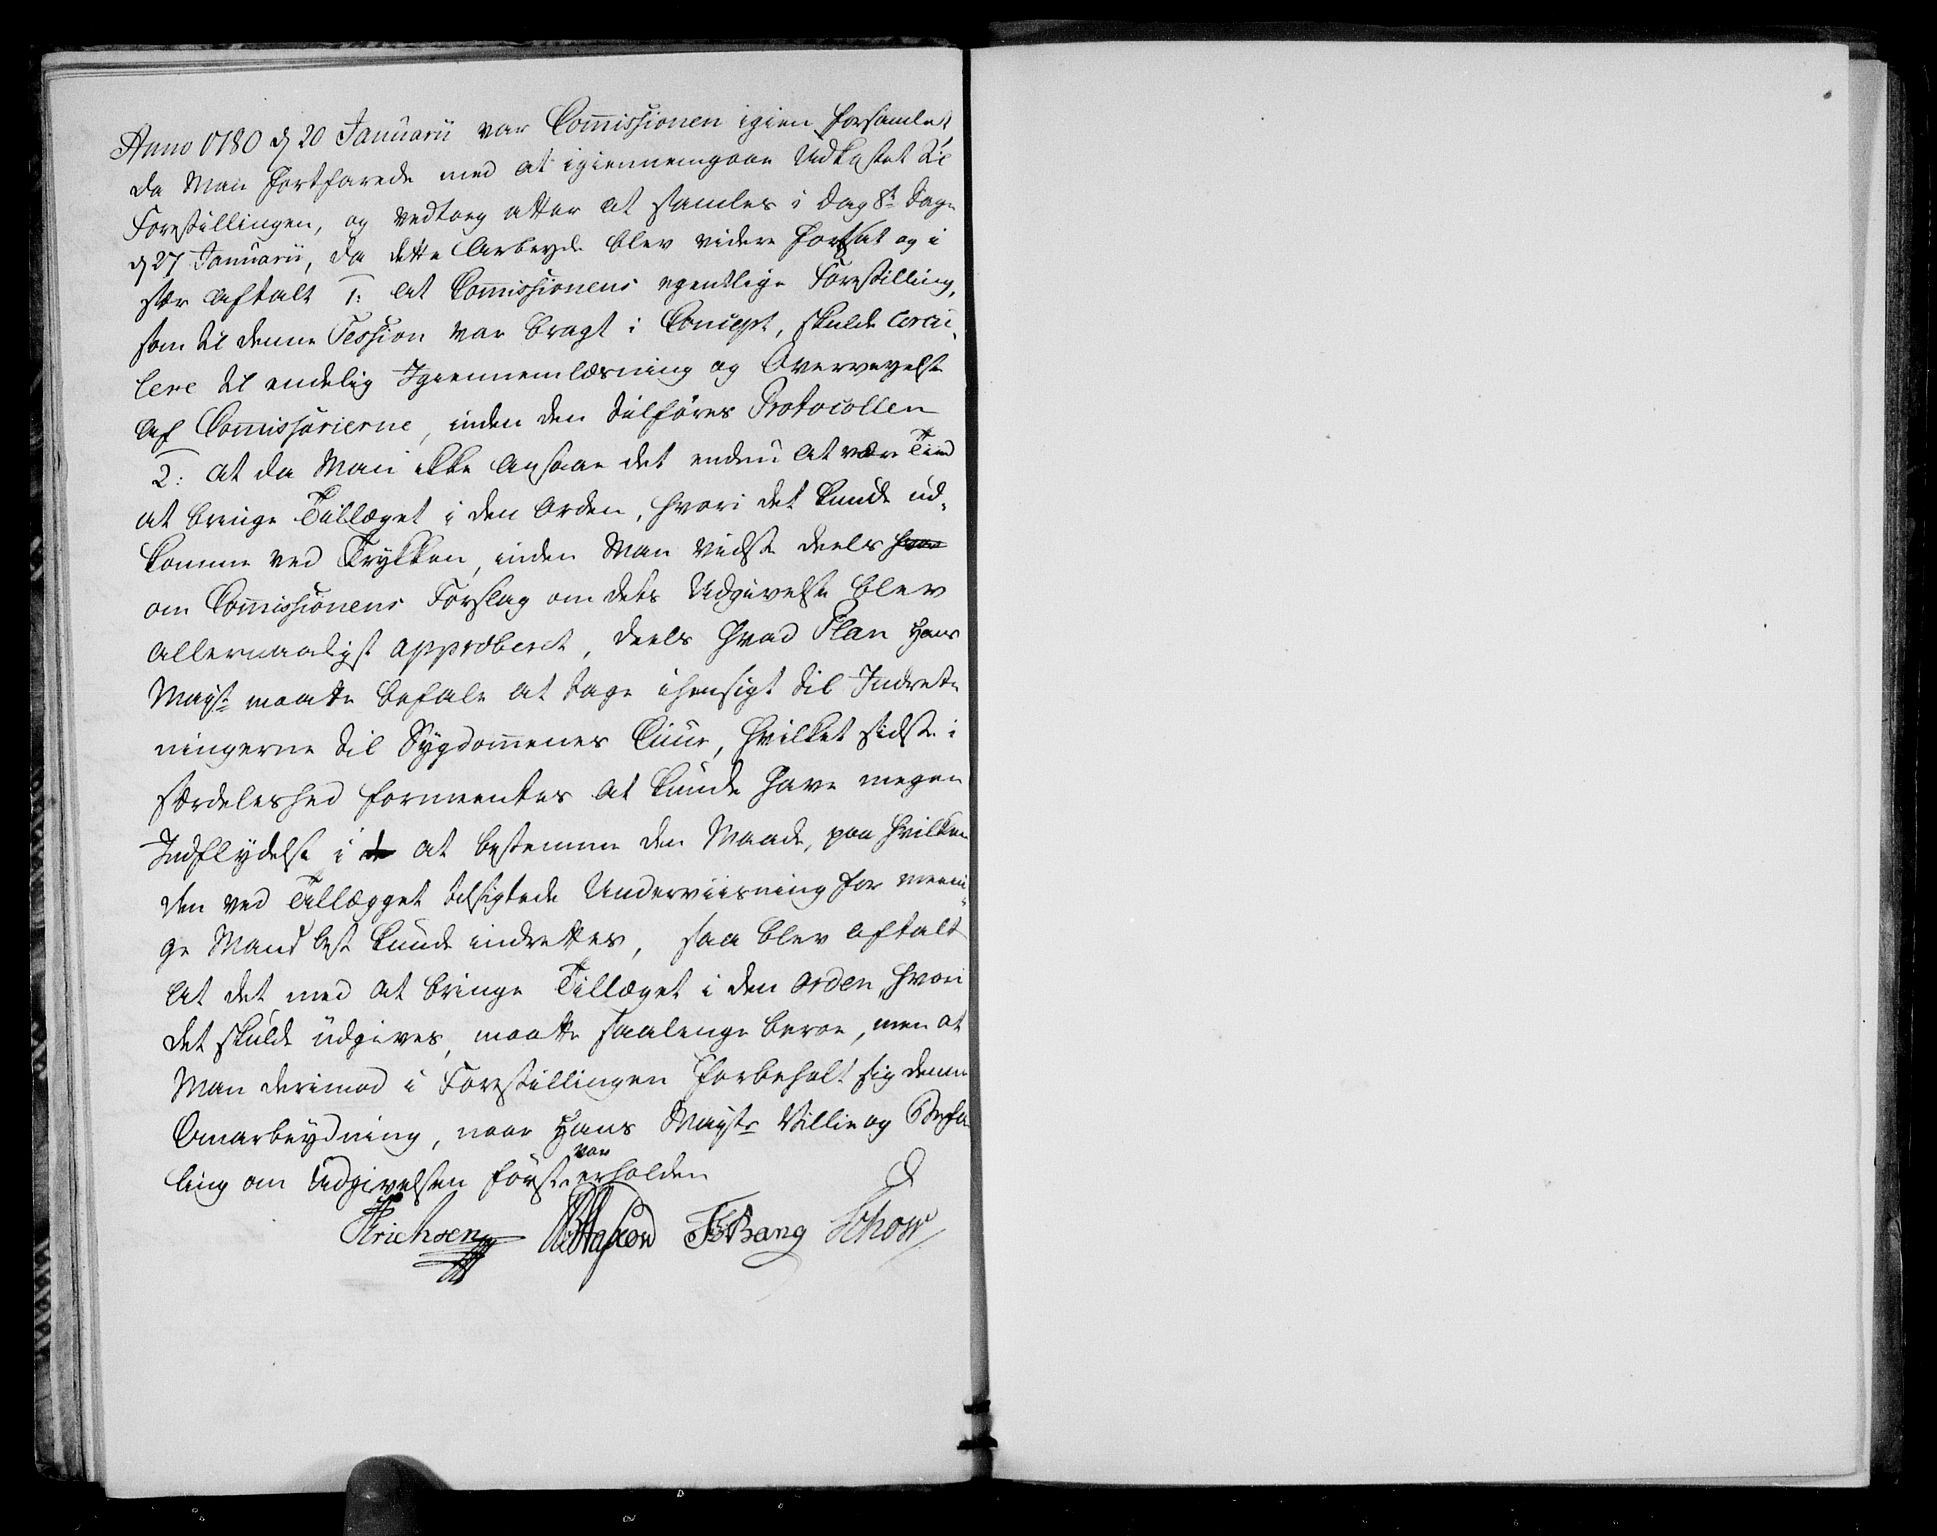 Anno 1780 d 20 Januarii var Commissionen igien forsamlet
da Man fortfarede med at igiennemgaae Udkastet til
Forestillingen, og vedtoeg atter at samles i dag 8te dage
d 27 Januarii, da dette Arbeyde blev videre fortsat og i
sær aftalt 1: at Commissionens egentlige Forestilling,
som til denne Session var bragt i Concept, skulde circu-
lere til endelig Igiennemlæsning og Overveyelse
af Commissarierne, inden den tilføres Protocollen
2: at da Man ikke ansaae det endnu at være Tiid
at bringe Tillæget i den Orden, hvori det kunde ud-
komme ved Trykken, inden Man vidste deels
om Commissionens Forslag om dets Udgivelse blev
allernaadigst approberet, deels hvad Plan Hans
Mayst maatte befale at tage ihensigt til Indret-
ningerne til Sygdommenes Cuur, hvilket sidste i
særdeleshed formeentes at kunde have megen
Indflydelse i at bestemme den Maade, paa hvilken
den ved Tillægget tilsigtede Underviisning for meeni-
ge Mand best kunde indrettes, saa blev aftalt
at det med at bringe Tillæget i den Orden, hvori
det skulde udgives, maatte saalenge beroe, men at
Man derimod i Forestillingen forbeholt sig denne
Omarbeydning, naar Hans Maysts Villie og Befa-
ling om Udgivelsen først var erholden
Erichsen FLBang Schow